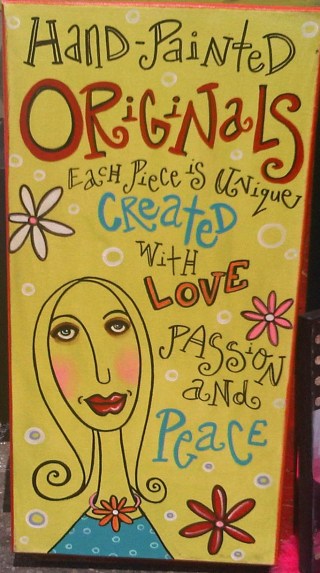 HAND-PAiNtED
ORiGiNaLS
EacH PiEcE iS UNiQuE
CREatED
WitH
LOVE
PaSSiON
aND
PEacE